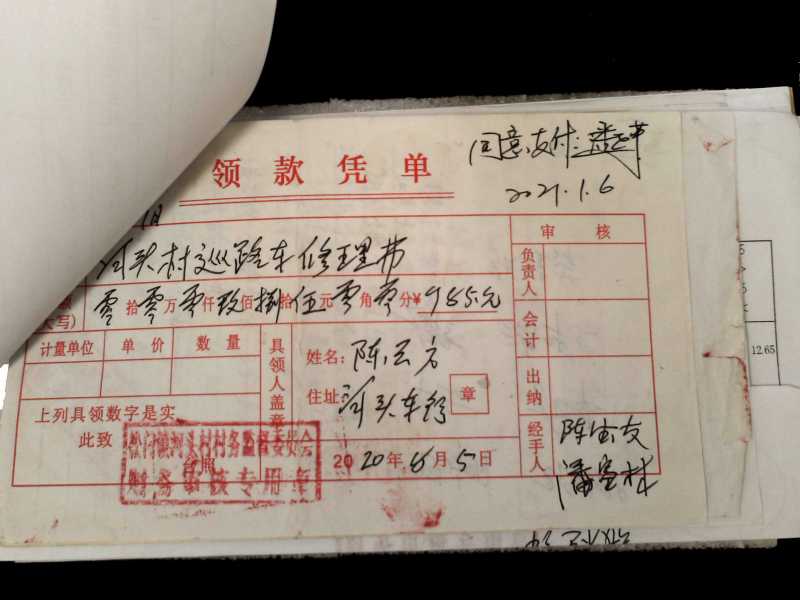 同意支付
2021.1.6
领款凭单
月
河头村巡路车修理费
零拾零万零仟玖佰捌拾伍元零角零分¥985.元
大写)
计量单位 单价 数量
上列具领数字是实
此致
台照
松门镇河头村村务监督委员会
财务审核专用章
具领人盖章
姓名:陈云方
住址:河头车行
章
2020年6月5日
审核
负责人
会计
出纳
经手人
陈
潘
12.65